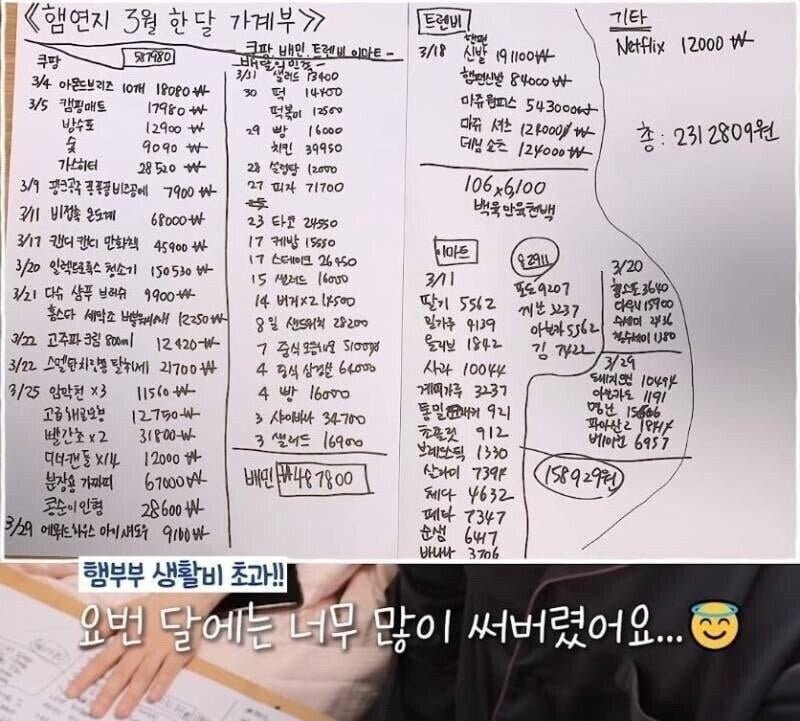 《햄연지 3월 한달 가계부》
쿠팡 587980
3/4 아몬드브리즈 10개 18080₩
3/5 캠핑매트 17980₩
방수포 12900₩
숯 9090₩
가스히터 28520₩
3/9 7900₩
3/11 비접촉 온도계 68000₩
3/17 캔디캔디 만화책 45900₩
3/20 일렉트로룩스 청소기 150530₩
3/21 다슈 샴푸 브러쉬 9900₩
홈스타 세탁조 12250₩
3/22 고주파 크림 800ml 12420₩
3/22 탈취제 21700₩
3/25 암막천 ×3 11560₩
12750₩
빨간초×2 31800₩
티캔들×14 12000₩
분장용 67000₩
콩순이인형 28600₩
3/29 에뛰드하우스 아이섀도우 9100₩
쿠팡, 배민, 트렌비 이마트
배달의민족
3/31 샐러드 13400
30 떡 14400
떡볶이 12500
29 빵 16000
치킨 39950
28 설렁탕 12000
27 피자 71700
23 타코 24550
17 케밥 15550
17 스테이크 26950
15 샐러드 16000
14 버거×2 14500
8일 샌드위치 28200
7 중식 51000
4 중식 64000
4 빵 16000
3 34700
3 샐러드 16900
배민 ₩487800
트렌비
3/18 햄편 신발 191100₩
햄편신발 84000₩
마쥬원피스 543000₩
마쥬 셔츠 124000₩
데님쇼츠 124000₩
106×6,100
백육만육천백
이마트
3/11
딸기 5562
밀가루 9139
올리브 1842
사과 10044
계피가루 3237
통밀 921
초콜릿 912
브레드스틱 1330
살라미 7394
체다 4632
페타 7347
순생 6417
바나나 3706
포도 9207
3237
아보카도 5562
김 7422
3/20
3640
다우니 15900
수세미 2436
1380
3/29
10494
아보카도 1191
명란
파마산2
베이컨 6957
158929원
기타
Netflix 12000₩
총 : 2312809원
햄부부 생활비 초과!!
요번 달에는 너무 많이 써버렸어요...